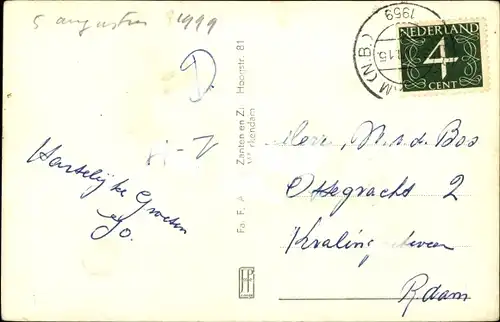 5 augustus 1999
D.
H-V
Hartelijke Groeten
Jo.
Fa. F. A
Zanten en Zn Hoogstr. 81
Werkendam
M (N.B.)
1959
NEDERLAND
4
CENT
Heer, N. v. d. Bos
Ossegracht 2
Kralingscheveer
R.dam